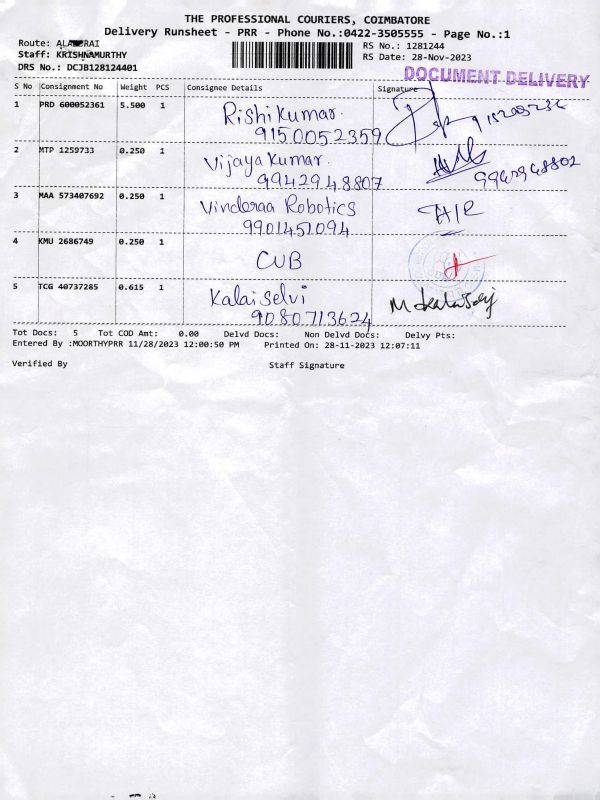 THE PROFESSIONAL COURIERS, COIMBATORE
Delivery Runsheet - PRR - Phone No.:0422-3505555 - Page No.:1
Route:
Staff: KRISHNAMURTHY
DRS No.: DCJB128124401
RS No.: 1281244
RS Date: 28-Nov-2023
DOCUMENT DELIVERY
S No Consignment No Weight PCS Consignee Details Signature
1 PRD 600052361 5.500 1 Rishi Kumar.
9150052359
2 MTP 1259733 0.250 1 Vijaya Kumar.
9942948807 9942948802
3 MAA 573407692 0.250 1 Vinderaa Robotics
9901451094
4 KMU 2686749 0.250 1 CUB
5 TCG 40737285 0.615 1 Kalai Selvi
9080713624
Tot Docs: 5 Tot COD Amt: 0.00 Delvd Docs: Non Delvd Docs: Delvy Pts:
Entered By :MOORTHYPRR 11/28/2023 12:00:50 PM Printed On: 28-11-2023 12:07:11
Verified By Staff Signature